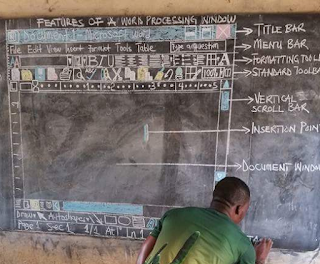 FEATURES OF A WORD PROCESSING WINDOW
Document 1 - Microsoft word
TITLE BAR
File Edit View Insert Format Tools Table
Type a question
MENU BAR
B I U
A
FORMATTING TOOLB
100%
STANDARD TOOLBA
VERTICAL
SCROLL BAR
INSERTION POINT
DOCUMENT WINDOW
Draw AutoShapes
Page 1 Sec 1 1/1 At 1" Ln 1
STA